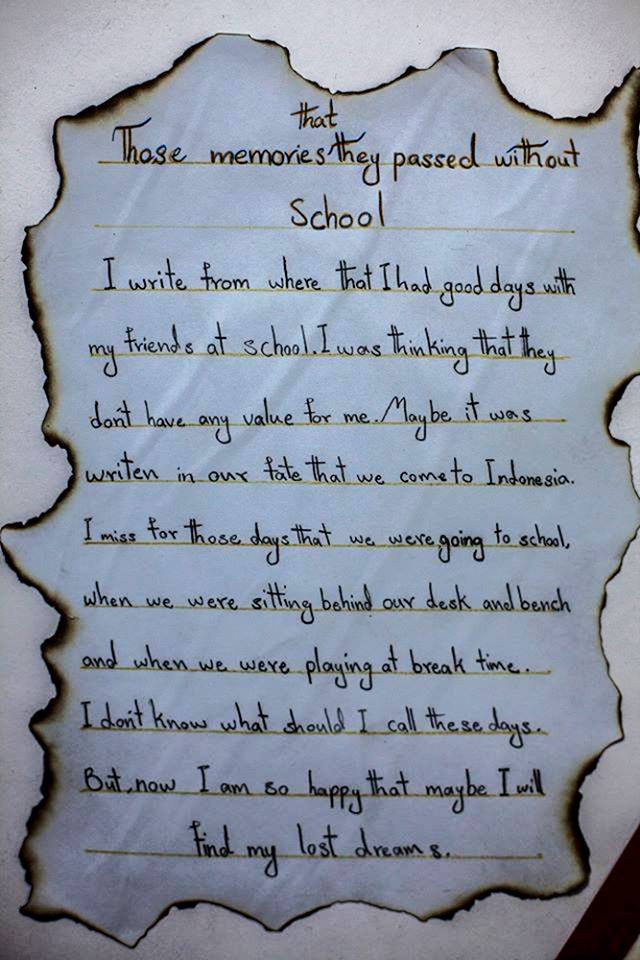 that
Those memories they passed without
School
I write from where that I had good days with
my friends at school. I was thinking that they
don't have any value for me. Maybe it was
writen in our fate that we come to Indonesia.
I miss for those days that we were going to school,
when we were sitting behind our desk and bench
and when we were playing at break time.
I don't know what should I call these days.
But, now I am so happy that maybe I will
find my lost dreams.